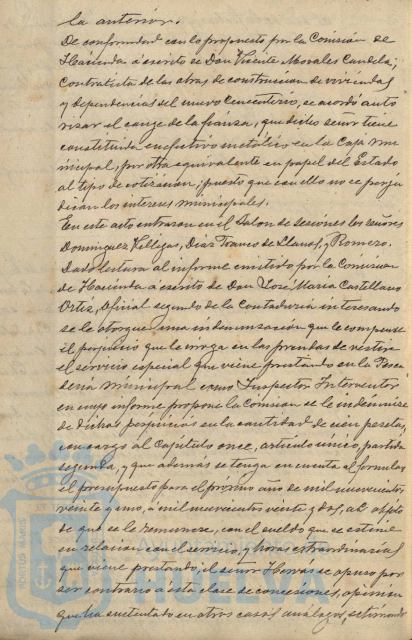 la anterior.
De conformidad con lo propuesto por la Comisión de
Hacienda á escrito de Don Vicente Morales Candela,
Contratista de las obras de construccion de viviendas
y dependencias del nuevo Cementerio, se acordó auto
rizar el cange de la fianza, que dicho señor tiene
constituida en efectivo metálico en la Caja mu
nicipal, por otra equivalente en papel del Estado
al tipo de cotizacion; puesto que con ello no se perju
dican los intereses municipales.
En este acto entraron en el Salon de sesiones los señores
Dominguez Villegas, Diaz Franco de Llanos, y Romero.
Dada lectura al informe emitido por la Comision
de Hacienda á escrito de Don José Maria Castellano
Ortiz, Oficial segundo de la Contaduria interesando
se le otorgue una indemnizacion que le compense
el perjuicio que le irroga en las prendas de vestir
el servicio especial que viene prestando en la Pesca
deria Municipal como Inspector Interventor
en cuyo informe propone la Comision se le indemnice
de dichos perjuicios en la cantidad de cien pesetas,
con cargo al Capitulo once, articulo único partida
segunda, y que además se tenga en cuenta al formular
el presupuesto para el próximo año de mil novecientos
veinte y uno, á mil novecientos veinte y dos, al objeto
de que se le remunere, con el sueldo que se estime
en relacion con el servicio, y horas extraordinarias
que viene prestando, el señor Hervás se opuso por
ser contrario á esta clase de concesiones, opinion
que ha sustentado en otros casos análogos, estimando
Ayuntamiento de
HUELVA